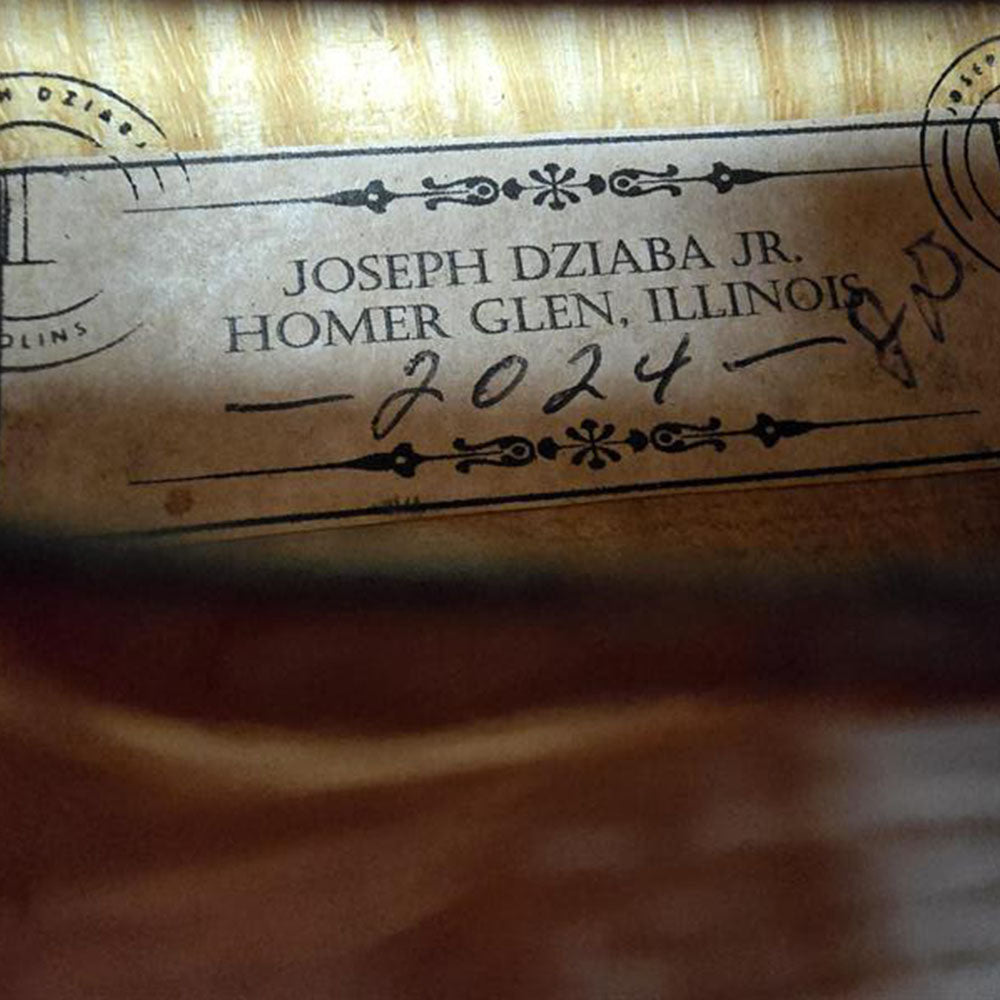 H DZIABA
OLINS
JOSEPH DZIABA JR.
HOMER GLEN, ILLINOIS
— 2024 —
JOSEP